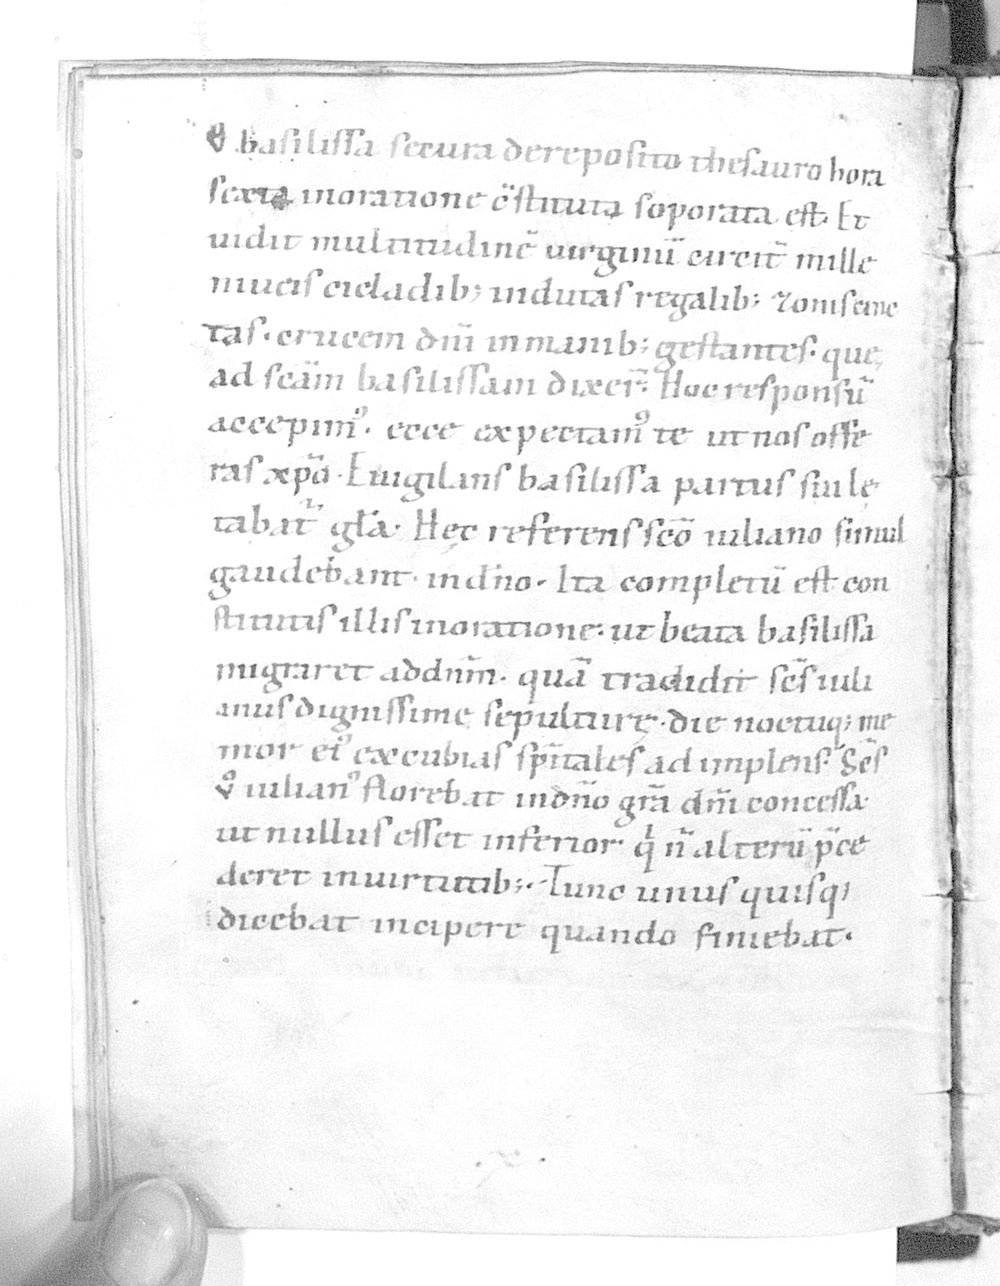 ͮ basilissa secura dereposito thesauro hora
sexta inoratione c̄stituta soporata est. Et
uidit multitudinē uirginū circit̄ mille
niueis cicladib; indutas regalib; ⁊oniscinc
tas. crucem dn̄i inmanib; gestantes. que
ad scām basilissam dixer̄. Hoc responsū
accepim᾽. ecce expectam᾽ te ut nos offe
ras xp̄o. Euigilans basilissa partus sui lę
tabat̄ gl̄a. Hęc referens scō iuliano simul
gaudebant. in dn̄o. Ita completū est con
stitutis illis inoratione. ut beata basilissa
migraret ad dnm̄. quā tradidit scs̄ iuli
anus dignissime sepulturę. die noctuq; me
mor ei᾽ excubias sp̄itales adimplens. Scs̄
ͮ iulian᾽ florebat in dn̄o grā dn̄i concessa.
ut nullus esset inferior. q̇ n̄ alterū p̄ce
deret in uirtutib;. Tunc unus quisq;
dicebat incipere quando finiebat.